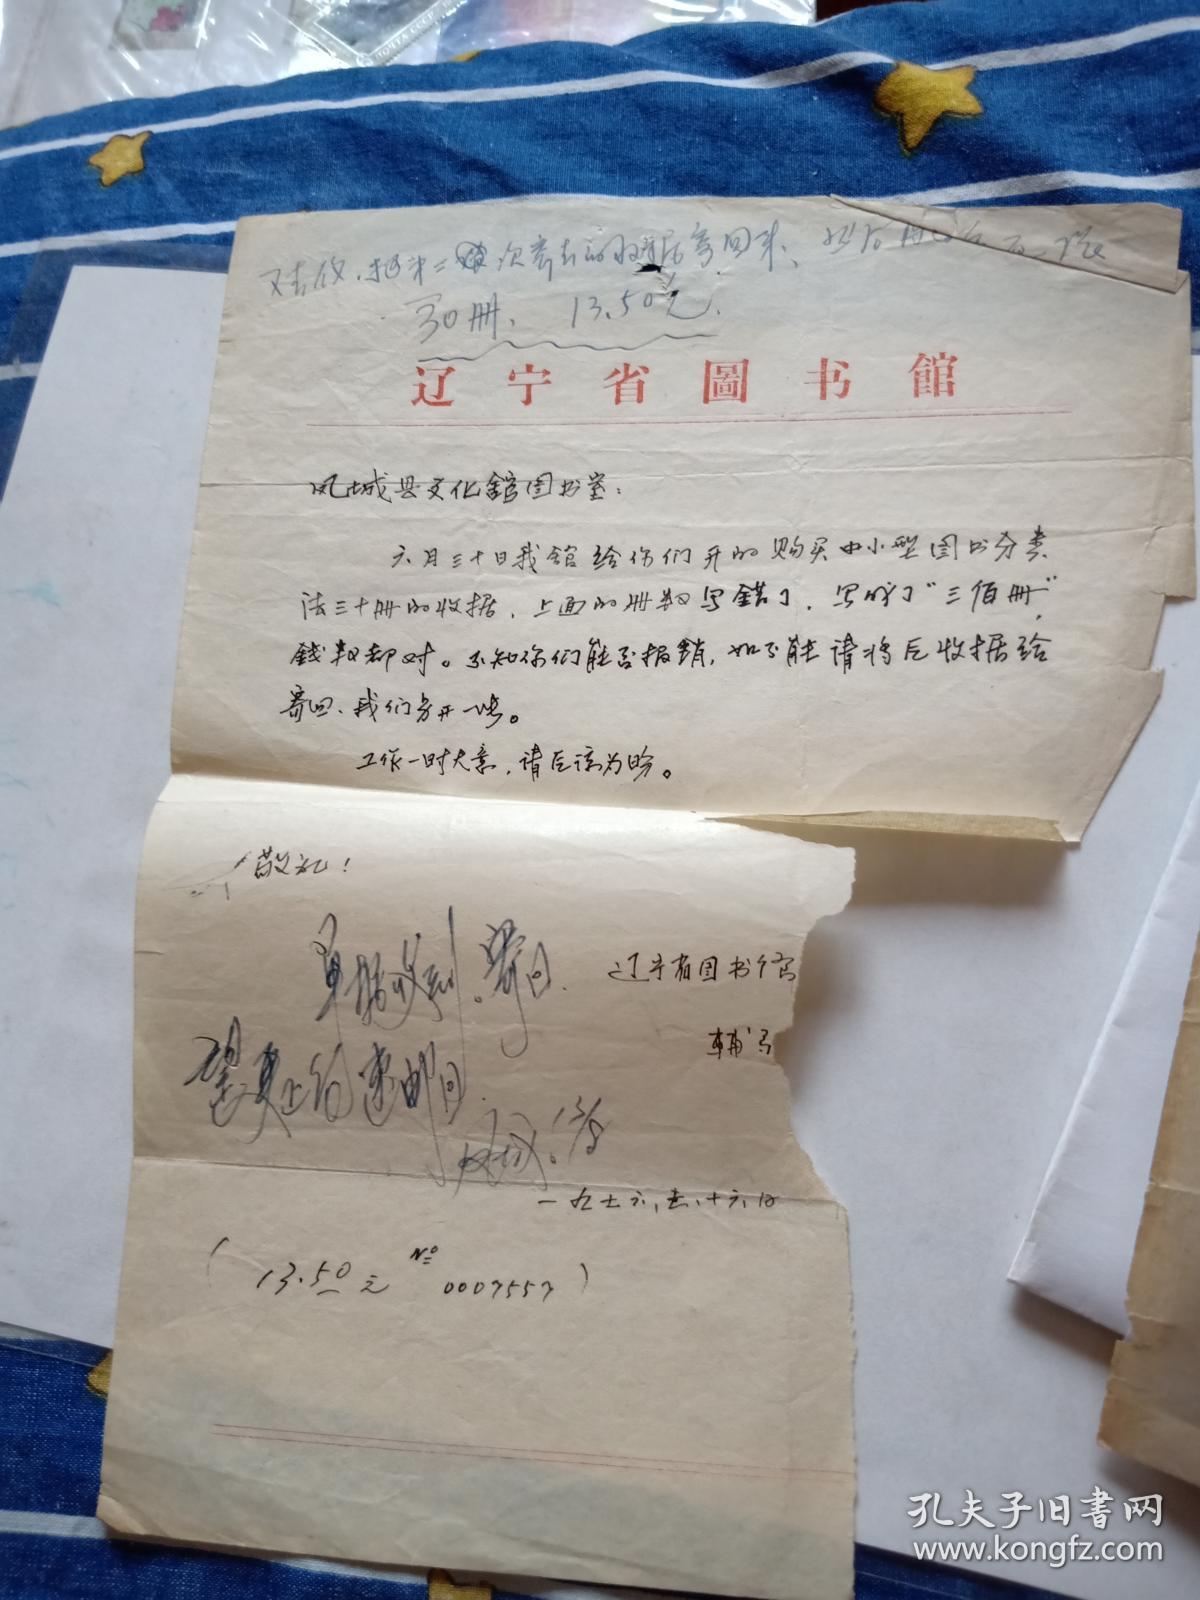 30册、13.50元.
辽宁省圖书館
凤城县文化館图书室:
六月三十日我館给你们开的购买中小型图书分类
法三十册的收据,上面的册数写错了,写成了"三佰册",
钱数都对。不知你们能否报銷,如不能请将后收据给
寄回、我们另开一张。
工作一时大意,请后谅为盼。
敬礼!
单据收到.寄回.
辽宁省图书馆
辅
望更正后速邮回.
凤城.
一九七六,
十六日
(13.50元 № 0007557)
孔夫子旧书网
www.kongfz.com